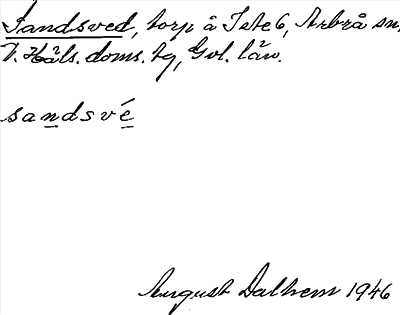 Sandsved, torp å Iste 6, Arbrå sn,
V. Häls. doms. tg, Gvl. län.
sandsvé
August Dalhem 1946